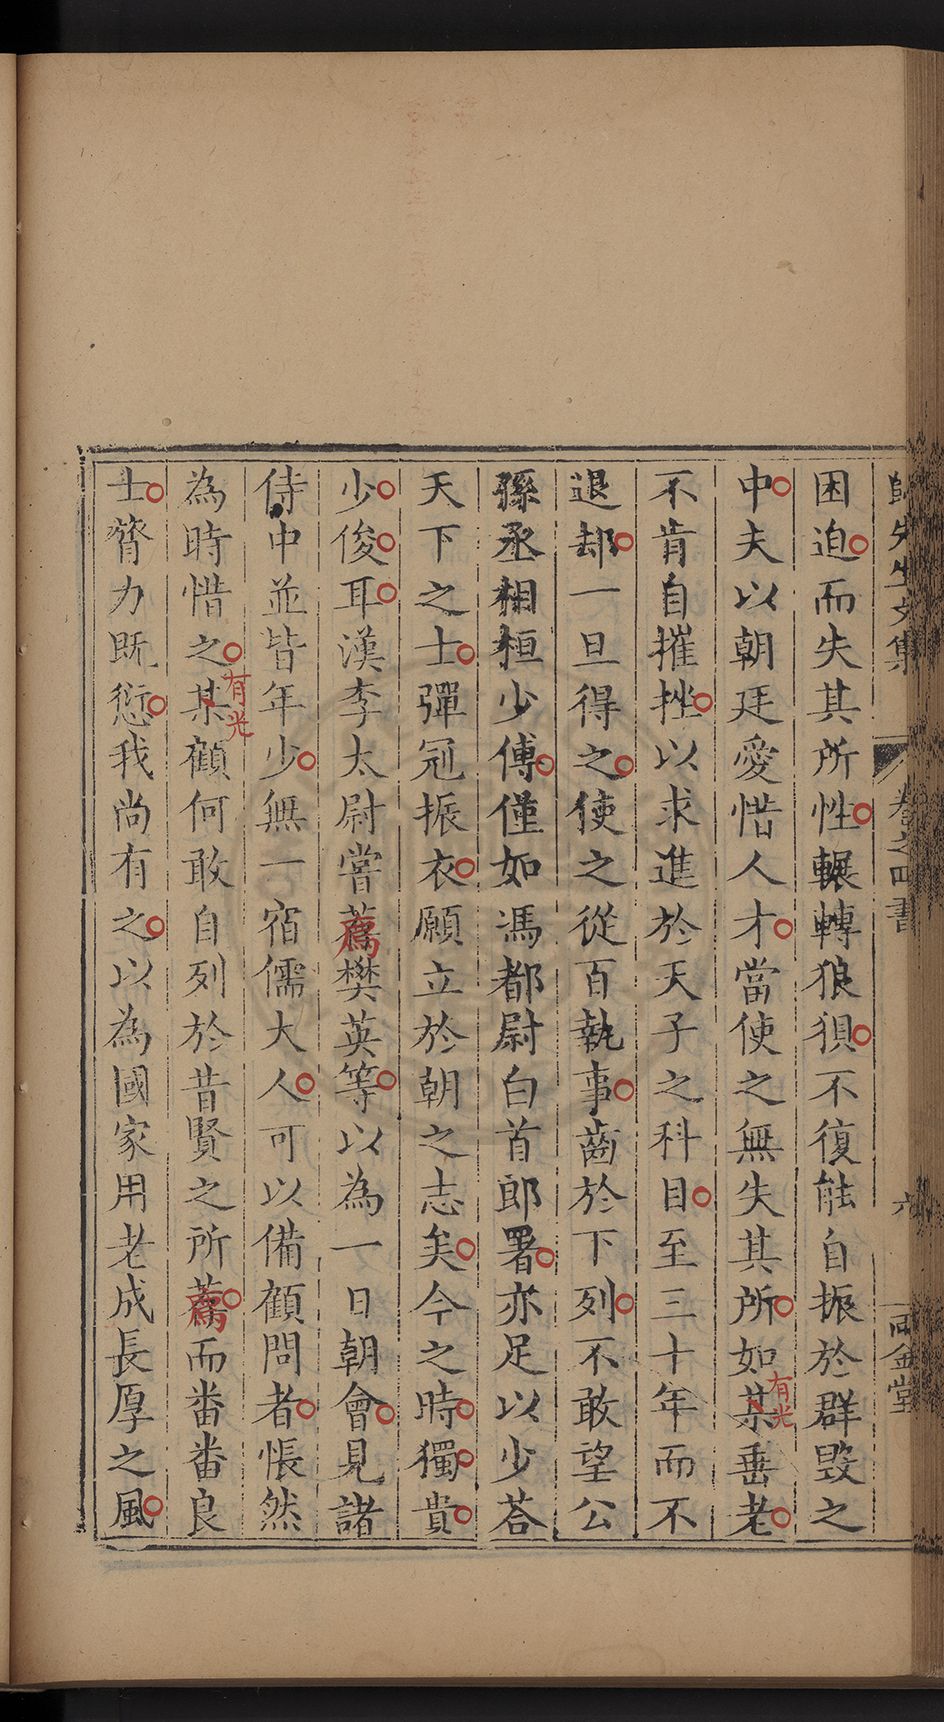 歸先生文集 卷之四 書 六 兩金堂
困迫而失其所性輾轉狼狽不復能自振於群毀之
中夫以朝廷愛惜人才當使之無失其所如某垂老
有光
不肯自摧挫以求進於天子之科目至三十年而不
退却一旦得之使之從百執事齒於下列不敢望公
孫丞相桓少傅僅如馮都尉白首郎署亦足以少荅
天下之士彈冠振衣願立於朝之志矣今之時獨貴
少俊耳漢李太尉嘗薦樊英等以為一日朝會見諸
侍中並皆年少無一宿儒大人可以備顧問者悵然
為時惜之某顧何敢自列於昔賢之所薦而畨畨良
有光
士膂力既愆我尚有之以為國家用老成長厚之風